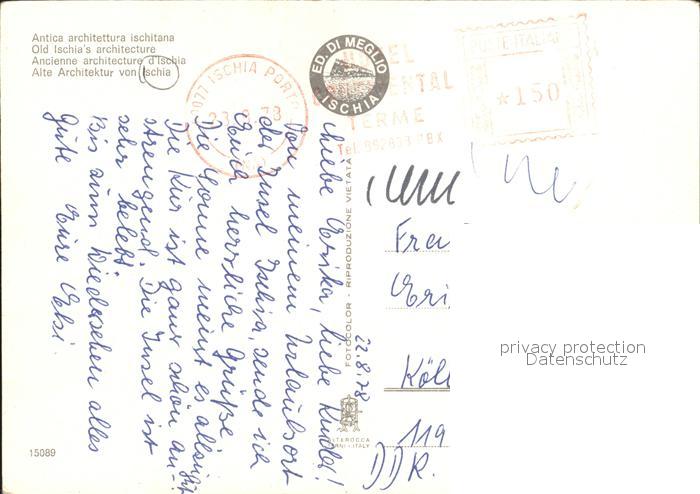 Antica architettura ischitana
Old Ischia's architecture
Ancienne architecture d'Ischia
Alte Architektur von Ischia
ISCHIA PORTO
23.8.78
ED. DI MEGLIO
ISCHIA
HOTEL
CONTINENTAL
TERME
POSTE ITALIANE
*150
Liebe Erika, liebe Kinder!
Von meinem Urlaubsort
der Insel Ischia, sende ich
Euch herzliche Grüße.
Die Sonne meint es allzu gut
Die Kur ist ganz schön an-
strengend. Die Insel ist
sehr belebt.
Bis zum Wiedersehen alles
Gute Eure Elsi.
FOTOCOLOR - RIPRODUZIONE VIETATA
22.8.78
Frau
Eri
Köl
119
DDR.
privacy protection
Datenschutz
15089